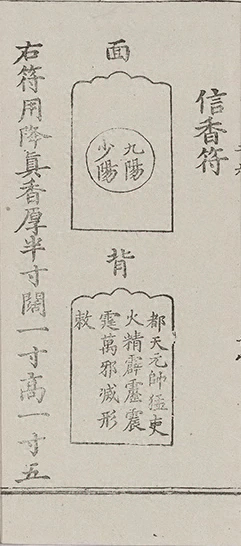 信香符
面
九陽
少陽
背
都天元帥猛吏
火精霹靂震
霆萬邪滅形
敕
右符用降真香厚半寸闊一寸高一寸五